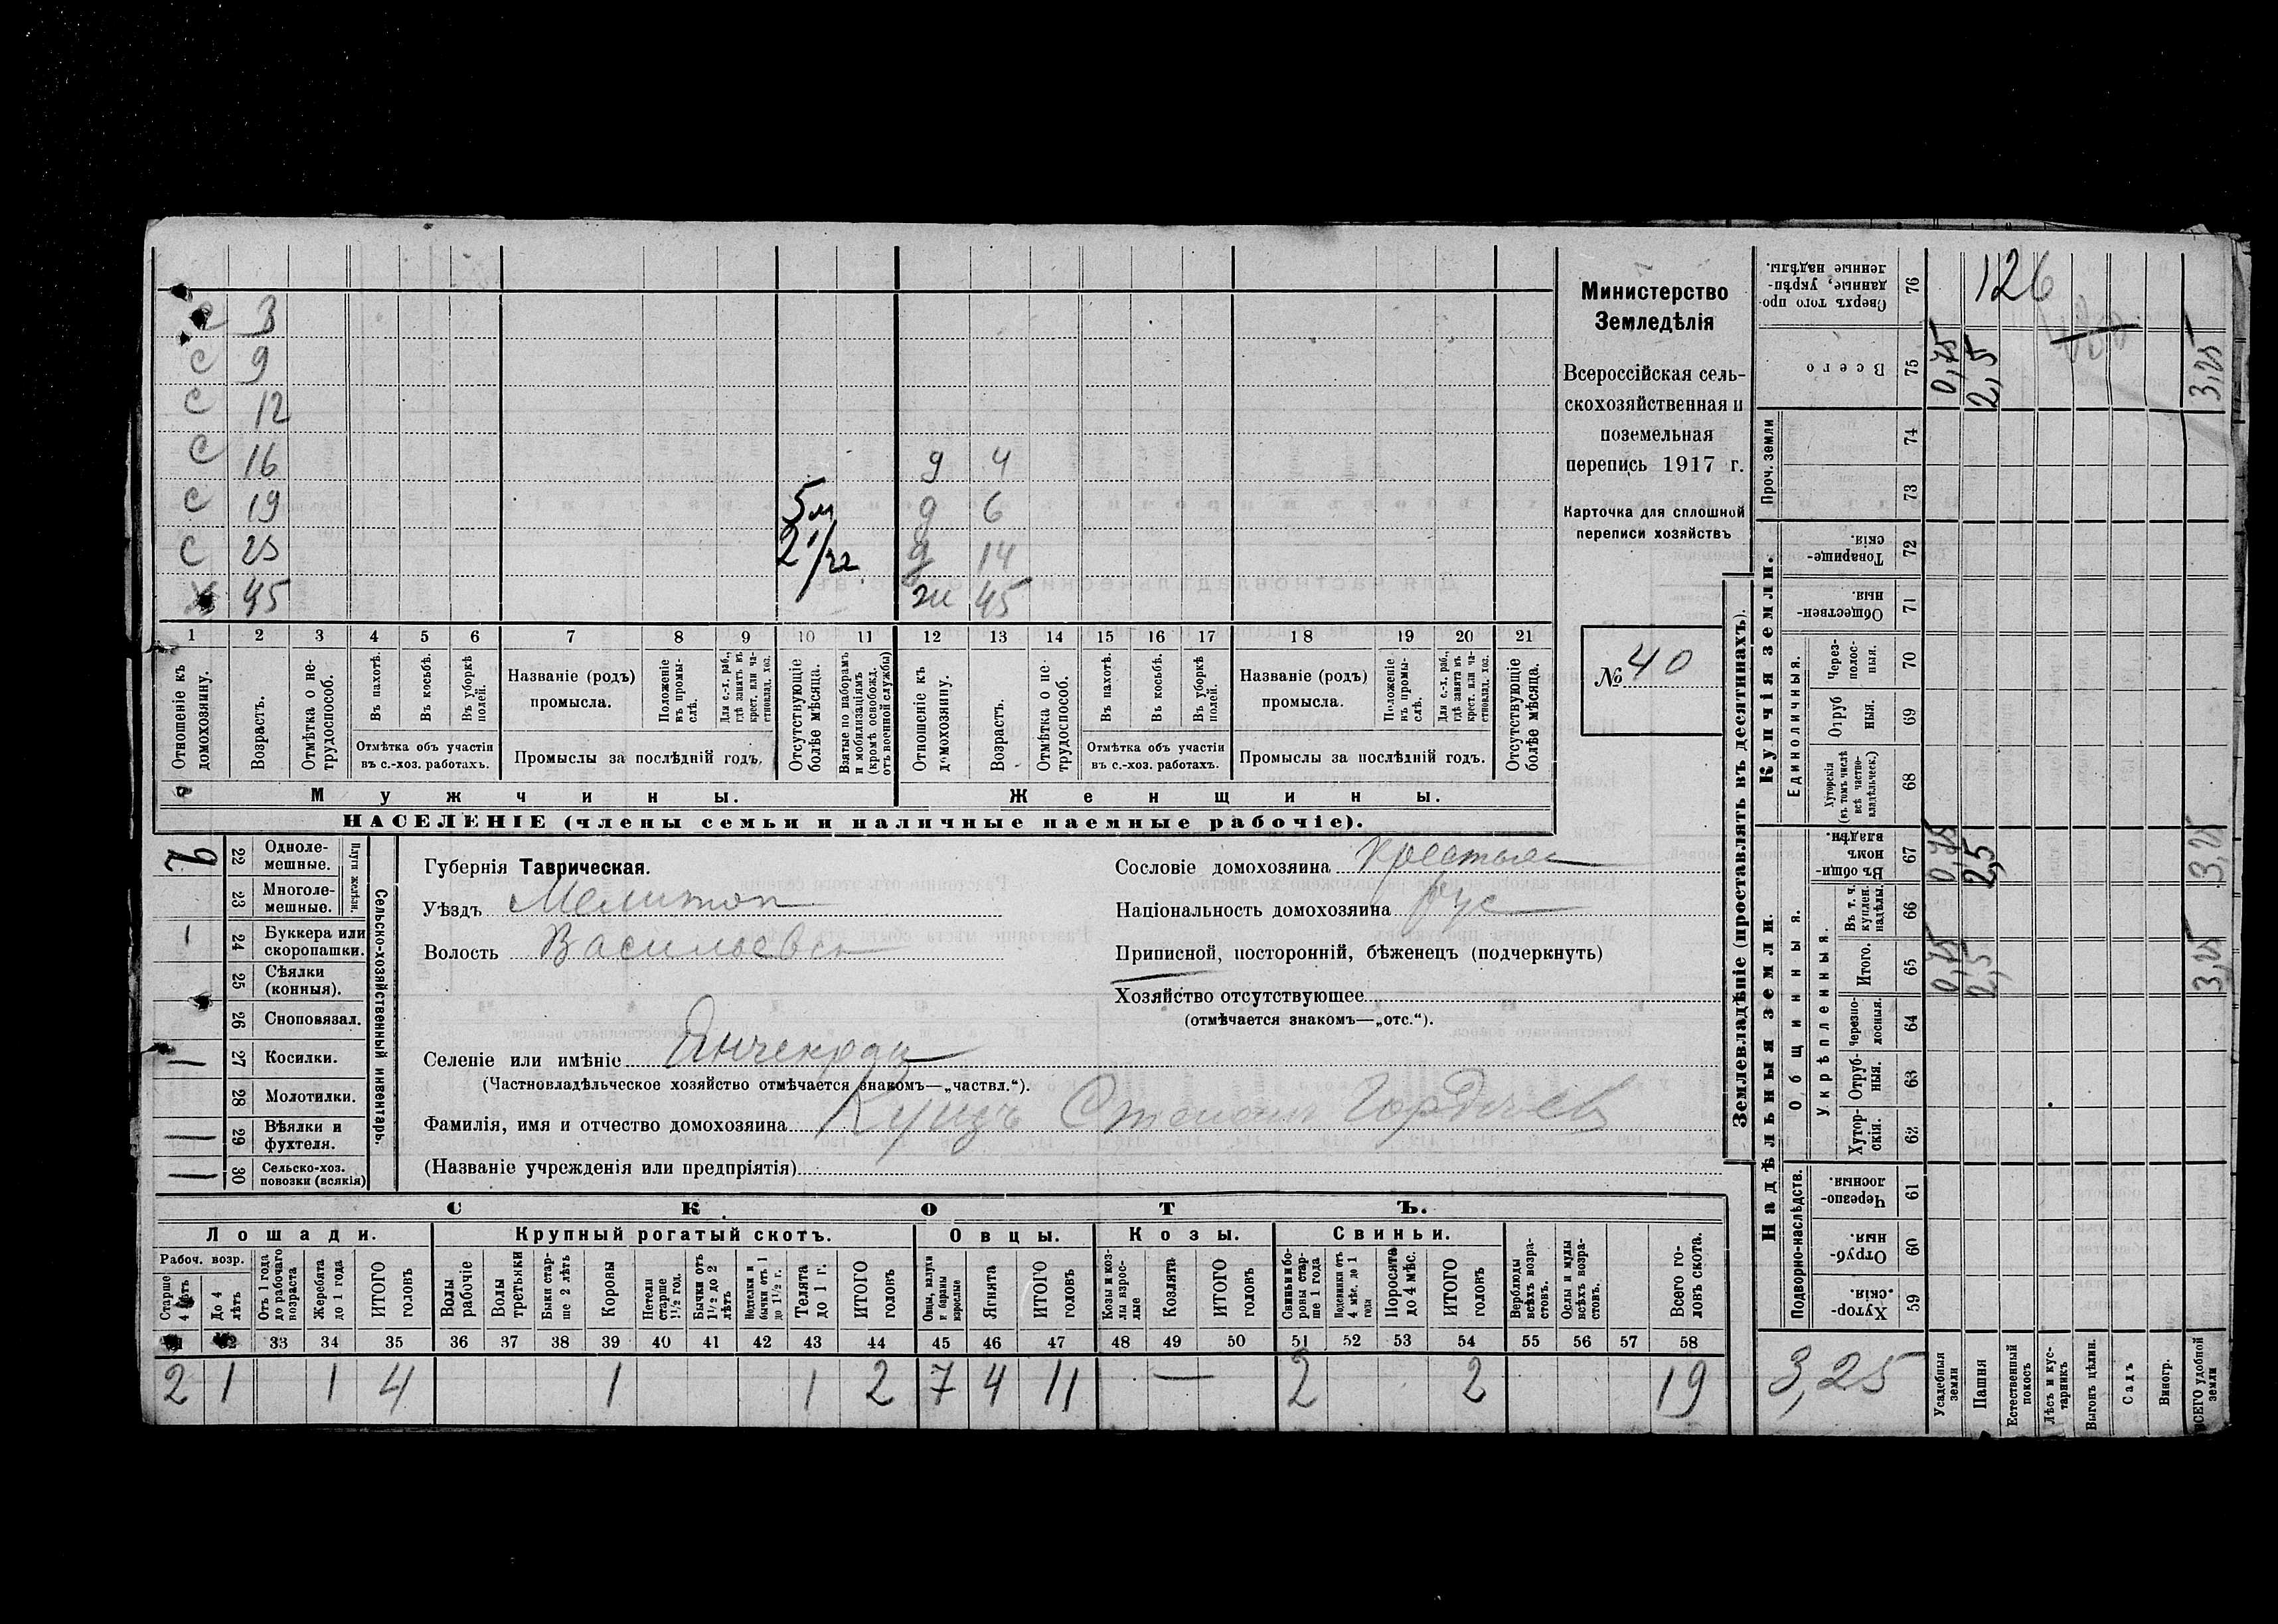 Министерство
Земледѣлія
Всероссійская сель-
скохозяйственная и
поземельная
перепись 1917 г.
Карточка для сплошной
переписи хозяйствъ
№ 40
с 3
с 9
с 12
с 16 д 4
с 19 5м д 6
с 25 2 1/2 д 14
х 45 ж 45
1 2 3 4 5 6 7 8 9 10 11 12 13 14 15 16 17 18 19 20 21
Отношеніе къ домохозяину.
Возрастъ.
Отмѣтка о не-трудоспособ.
Въ пахотѣ.
Въ косьбѣ.
Въ уборкѣ полей.
Отмѣтка объ участіи
въ с.-хоз. работахъ.
Названіе (родъ)
промысла.
Положеніе въ промы-слѣ.
Для с.-х. раб., гдѣ занятъ въ крест. или ча-стновлад. хоз.
Промыслы за послѣдній годъ.
Отсутствующіе болѣе мѣсяца.
Взятые по наборамъ и мобилизаціямъ (кромѣ освобожд. отъ военной службы)
Отношеніе къ домохозяину.
Возрастъ.
Отмѣтка о не-трудоспособ.
Въ пахотѣ.
Въ косьбѣ.
Въ уборкѣ полей.
Отмѣтка объ участіи
въ с.-хоз. работахъ.
Названіе (родъ)
промысла.
Положеніе въ промы-слѣ.
Для с.-х. раб., гдѣ занята въ крест. или ча-стновлад. хоз.
Промыслы за послѣдній годъ.
Отсутствующіе болѣе мѣсяца.
Мужчины. Женщины.
НАСЕЛЕНІЕ (члены семьи и наличные наемные рабочіе).
Сельско-хозяйственный инвентарь.
Плуги желѣзн.
22 Одноле-мешные.
23 Многоле-мешные.
24 Буккера или скоропашки.
25 Сѣялки (конныя).
26 Сноповязал.
27 Косилки.
28 Молотилки.
29 Вѣялки и фухтеля.
30 Сельско-хоз. повозки (всякія)
Губернія Таврическая.
Уѣздъ Мелитоп
Волость Васильевск
Селеніе или имѣніе Янчекрак
(Частновладѣльческое хозяйство отмѣчается знакомъ—„частвл.“).
Фамилія, имя и отчество домохозяина Куцъ Степанъ Гордѣев
(Названіе учрежденія или предпріятія)
Сословіе домохозяина крестьян
Національность домохозяина рус
Приписной, посторонній, бѣженец (подчеркнуть)
Хозяйство отсутствующее
(отмѣчается знакомъ—„отс.“).
СКОТЪ.
Лошади. Крупный рогатый скотъ. Овцы. Козы. Свиньи.
Рабоч. возр.
Старше 4 лѣтъ
До 4 лѣтъ
Отъ 1 года до рабочаго возраста
Жеребята до 1 года
ИТОГО головъ
Волы рабочіе
Волы третьяки
Быки стар-ше 2 лѣтъ
Коровы
Нетели старше 1½ год.
Бычки отъ 1½ до 2 лѣтъ
Подтелки и бычки отъ 1 до 1½ г.
Телята до 1 г.
ИТОГО головъ
Овцы, валухи и бараны взрослые
Ягнята
ИТОГО головъ
Козы и коз-лы взрос-лые
Козлята
ИТОГО головъ
Свиньи и бо-ровы стар-ше 1 года
Подсвинки отъ 4 мѣс. до 1 года
Поросята до 4 мѣс.
ИТОГО головъ
Верблюды всѣхъ возра-стовъ.
Ослы и мулы всѣхъ возра-стовъ.
Всего го-ловъ скота.
33 34 35 36 37 38 39 40 41 42 43 44 45 46 47 48 49 50 51 52 53 54 55 56 57 58
2 1 1 4 1 1 2 7 4 11 — 2 2 19
Землевладѣніе (проставлять въ десятинахъ).
Надѣльныя земли. Купчія земли.
Подворно-наслѣдств.
Общинныя.
Укрѣпленныя.
Единоличныя.
Проч. земли
Хутор-скія. 59
Отруб-ныя. 60
Черезпо-лосныя. 61
Хутор-скія. 62
Отруб-ныя. 63
Черезпо-лосныя. 64
Итого. 65
Въ т. ч. куплен. надѣлы. 66
Въ общи-номъ владѣн. 67
Хуторскія (въ томъ числѣ всѣ частно-владѣльческ.) 68
Отруб ныя. 69
Через-полос-ныя. 70
Обществен-ныя. 71
Товарище-скія. 72
73
74
Всего 75
Сверхъ того про-данные, укрѣп-ленные надѣлы. 76
126
0,75 2,5 3,25
0,75 2,5 3,25
0,75 2,5 3,25
3,25
Усадебныя земли
Пашня
Естественный покосъ
Лѣсъ и кус-тарникъ
Выгонъ цѣлин.
Садъ
Виногр.
ВСЕГО удобной земли